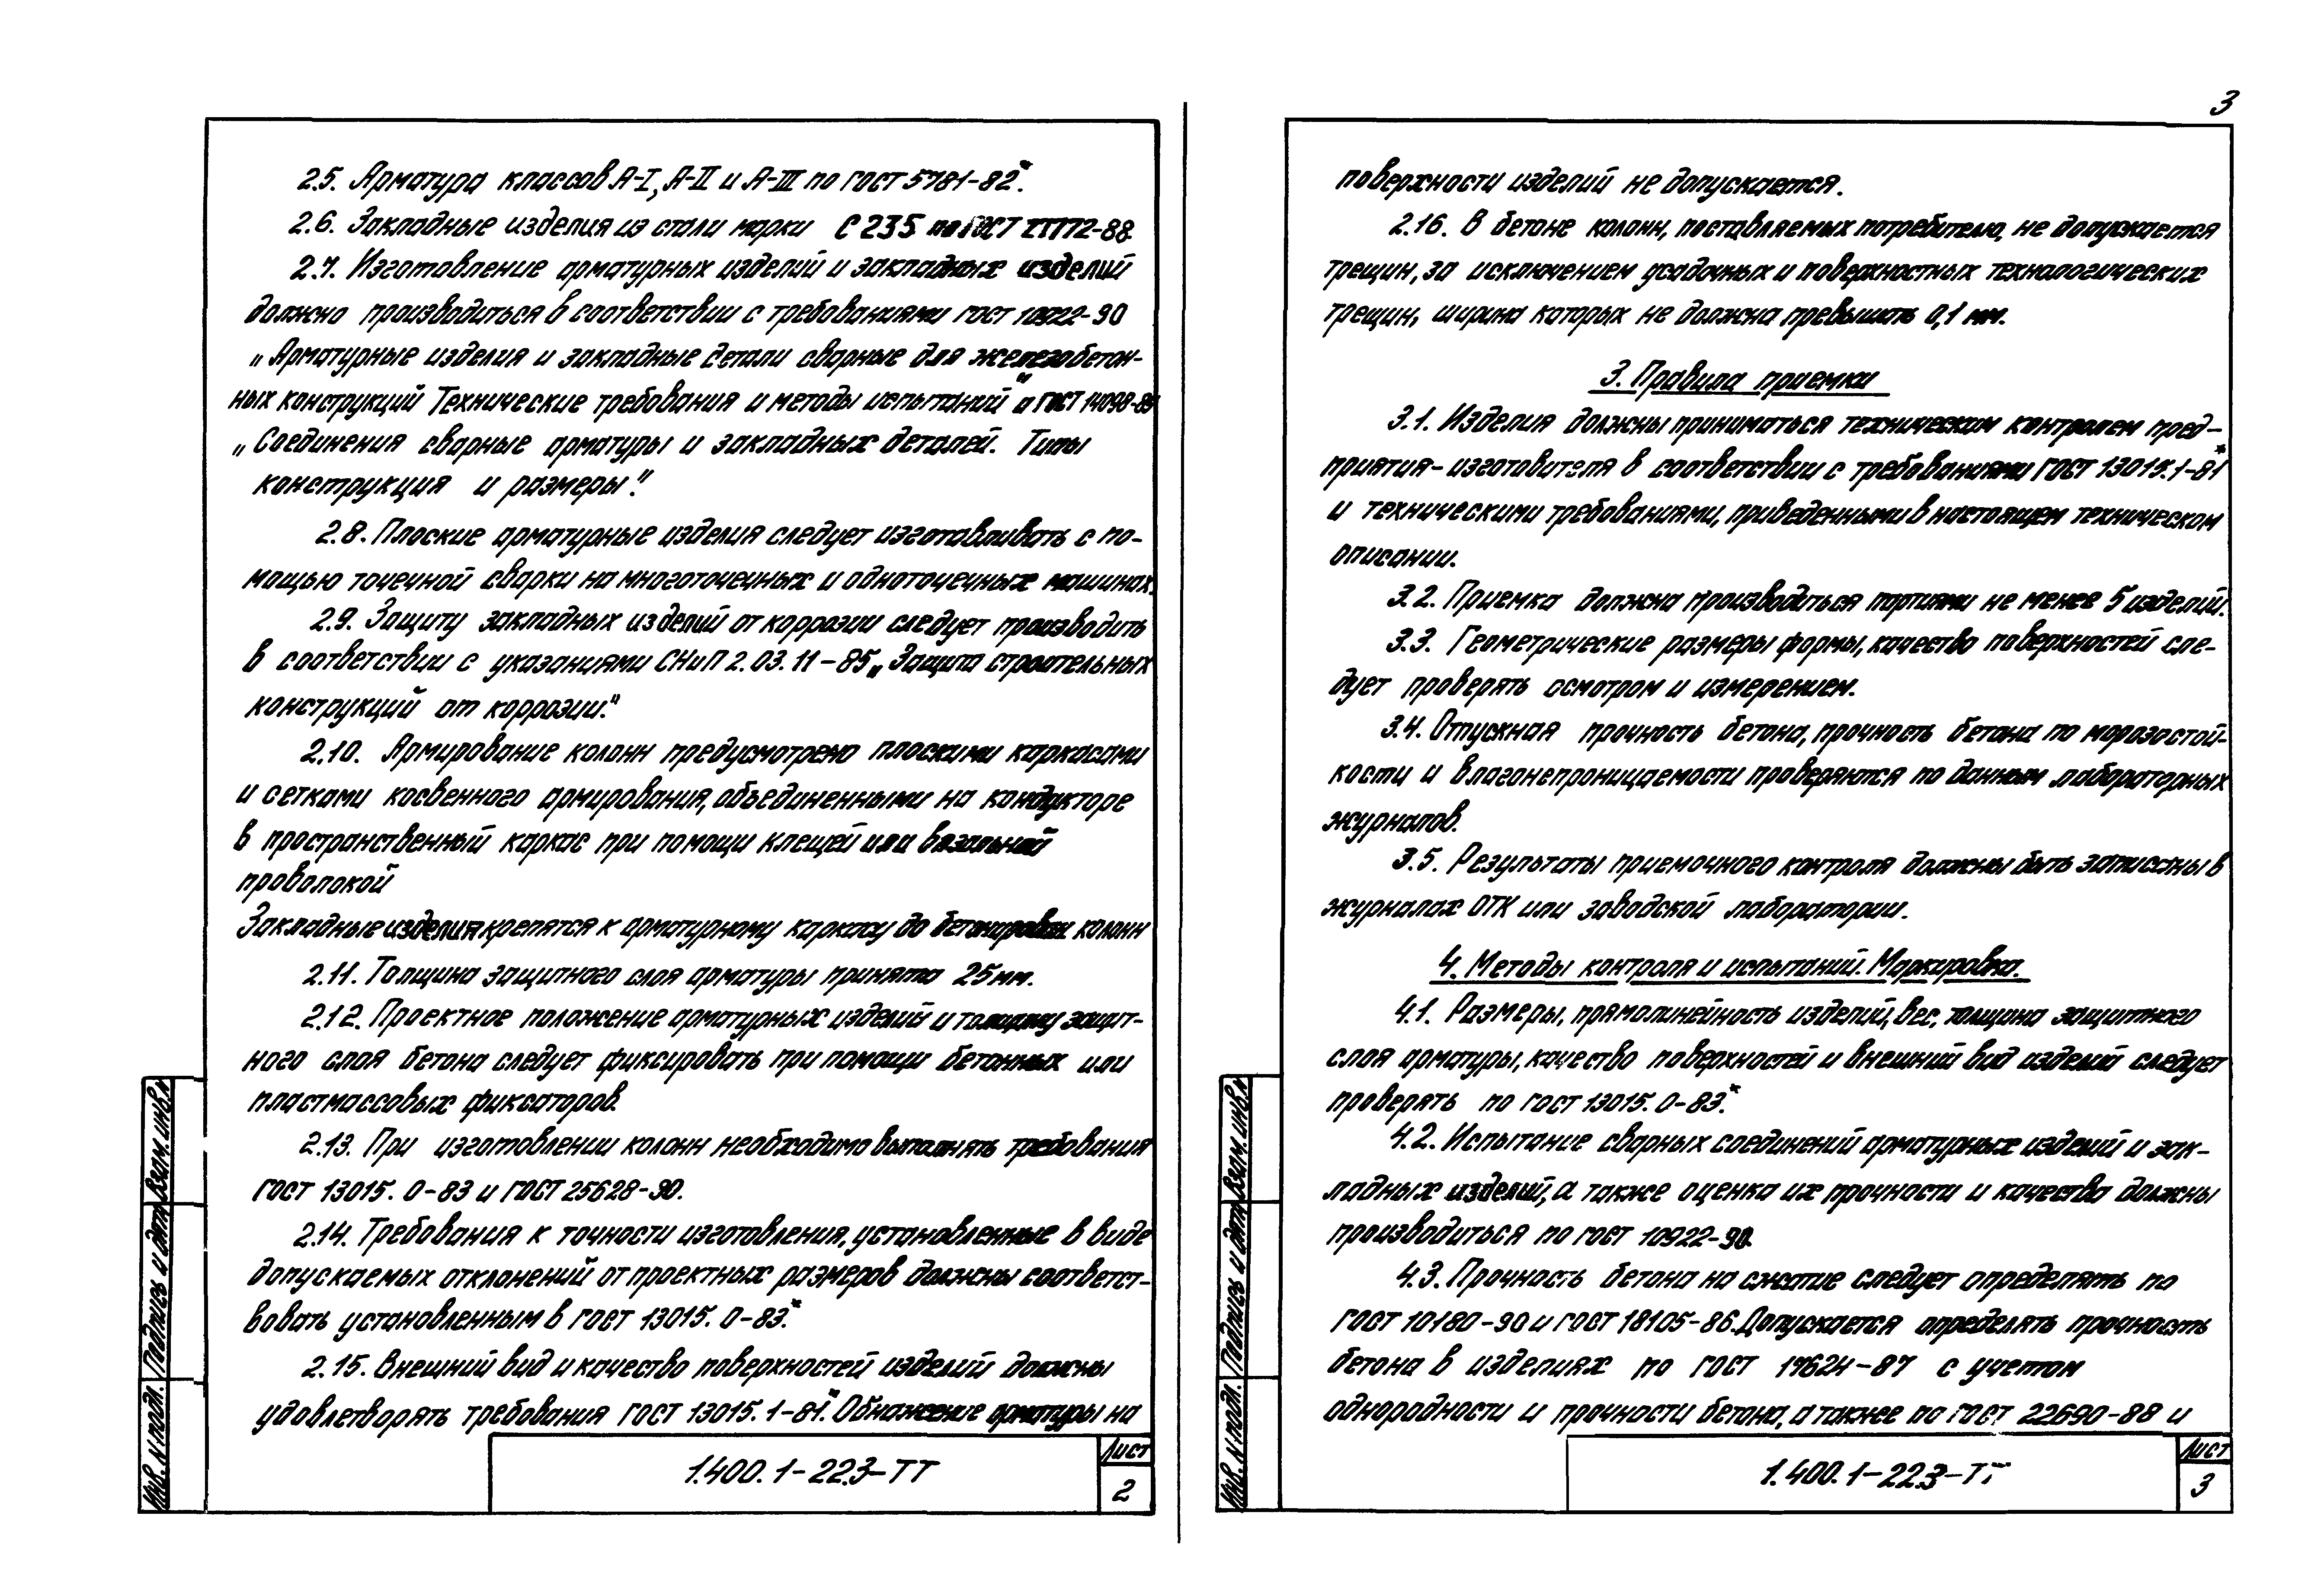 3
2.5. Арматура классов А-I, А-II и А-III по ГОСТ 5781-82*.
2.6. Закладные изделия из стали марки С 235 по ГОСТ 27772-88.
2.7. Изготовление арматурных изделий и закладных изделий
должно производиться в соответствии с требованиями ГОСТ 10922-90
„Арматурные изделия и закладные детали сварные для железобетон-
ных конструкций Технические требования и методы испытаний" и ГОСТ 14098-85
„Соединения сварные арматуры и закладных деталей. Типы
конструкция и размеры."
2.8. Плоские арматурные изделия следует изготавливать с по-
мощью точечной сварки на многоточечных и одноточечных машинах.
2.9. Защиту закладных изделий от коррозии следует производить
в соответствии с указаниями СНиП 2.03.11-85 „Защита строительных
конструкций от коррозии."
2.10. Армирование колонн предусмотрено плоскими каркасами
и сетками косвенного армирования, объединенными на кондукторе
в пространственный каркас при помощи клещей или вязальной
проволокой
Закладные изделия крепятся к арматурному каркасу до бетонировки колонн
2.11. Толщина защитного слоя арматуры принята 25мм.
2.12. Проектное положение арматурных изделий и толщину защит-
ного слоя бетона следует фиксировать при помощи бетонных или
пластмассовых фиксаторов.
2.13. При изготовлении колонн необходимо выполнять требования
ГОСТ 13015.0-83 и ГОСТ 25628-90.
2.14. Требования к точности изготовления, установленные в виде
допускаемых отклонений от проектных размеров должны соответст-
вовать установленным в ГОСТ 13015.0-83.*
2.15. Внешний вид и качество поверхностей изделий должны
удовлетворять требования ГОСТ 13015.1-81*. Обнажение арматуры на
1.400.1-22.3-ТТ
Лист
2
Взам. инв.№
Подпись и дата
Инв. № подл.
поверхности изделий не допускается.
2.16. В бетоне колонн, поставляемых потребителю, не допускается
трещин, за исключением усадочных и поверхностных технологических
трещин, ширина которых не должна превышать 0,1 мм.
3. Правила приемки
3.1. Изделия должны приниматься техническим контролем пред-
приятия-изготовителя в соответствии с требованиями ГОСТ 13015.1-81*
и техническими требованиями, приведенными в настоящем техническом
описании.
3.2. Приемка должна производиться партиями не менее 5 изделий.
3.3. Геометрические размеры формы, качество поверхностей сле-
дует проверять осмотром и измерением.
3.4. Отпускная прочность бетона, прочность бетона по морозостой-
кости и влагонепроницаемости проверяются по данным лабораторных
журналов.
3.5. Результаты приемочного контроля должны быть записаны в
журналах ОТК или заводской лаборатории.
4. Методы контроля и испытаний. Маркировка.
4.1. Размеры, прямолинейность изделий, вес, толщина защитного
слоя арматуры, качество поверхностей и внешний вид изделий следует
проверять по ГОСТ 13015.0-83.*
4.2. Испытание сварных соединений арматурных изделий и зак-
ладных изделий, а также оценка их прочности и качества должны
производиться по ГОСТ 10922-90.
4.3. Прочность бетона на сжатие следует определять по
ГОСТ 10180-90 и ГОСТ 18105-86. Допускается определять прочность
бетона в изделиях по ГОСТ 17624-87 с учетом
однородности и прочности бетона, а также по ГОСТ 22690-88 и
1.400.1-22.3-ТТ
Лист
3
Взам. инв.№
Подпись и дата
Инв. № подл.